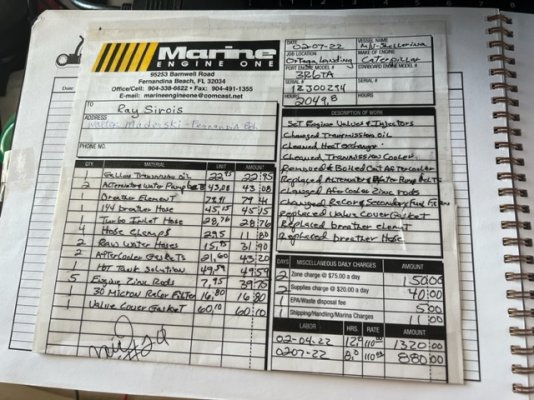 Marine
ENGINE ONE
95253 Barnwell Road
Fernandina Beach, FL 32034
Office/Cell: 904-338-6622 • Fax: 904-491-1355
E-mail: marineengineone@comcast.net
TO
Ray Sirois
ADDRESS
PHONE NO.
DATE
02-07-22
VESSEL NAME
JOB LOCATION
Ortega Landing
MAKE OF ENGINE
Caterpillar
PORT ENGINE MODEL #
3R6TA
SERIAL #
SERIAL #
HOURS
2049.8
HOURS
DESCRIPTION OF WORK
Set Engine Valves & Injectors
Changed Transmission Oil
Cleaned Heat Exchanger
Cleaned Transmission Cooler
Removed & Boiled Out Aftercooler
Replaced Alternator & Water Pump Belts
Changed After Cooler Zinc Rods
Changed Racor & Secondary Fuel
Replaced Valve Cover Gasket
Replaced breather element
Replaced breather Hose
QTY. MATERIAL UNIT AMOUNT
Gallon Transmission Oil 22.95 22.95
2 Alternator/Water Pump 43.08
1 Breather Element 79.41 79.41
1 Breather Hose 45.15 45.15
1 Turbo Inlet Hose 28.76 28.76
4 Hose Clamps 2.95 11.80
2 Raw Water Hoses 15.95 31.90
2 Aftercooler Gaskets 21.60 43.20
Hot Tank Solution 49.59 49.59
5 Engine Zinc Rods 7.95 39.75
1 30 Micron Racor Filter 16.80 16.80
1 Valve Cover Gasket 60.10 60.10
DAYS MISCELLANEOUS DAILY CHARGES AMOUNT
2 Zone charge @ $75.00 a day 150.00
2 Supplies charge @ $20.00 a day 40.00
1 EPA/Waste disposal fee 5.00
1 Shipping/Handling/Marina Charges 11.00
LABOR HRS. RATE AMOUNT
02-04-22 12.0 110.00 1320.00
02-07-22 8.0 110.00 880.00